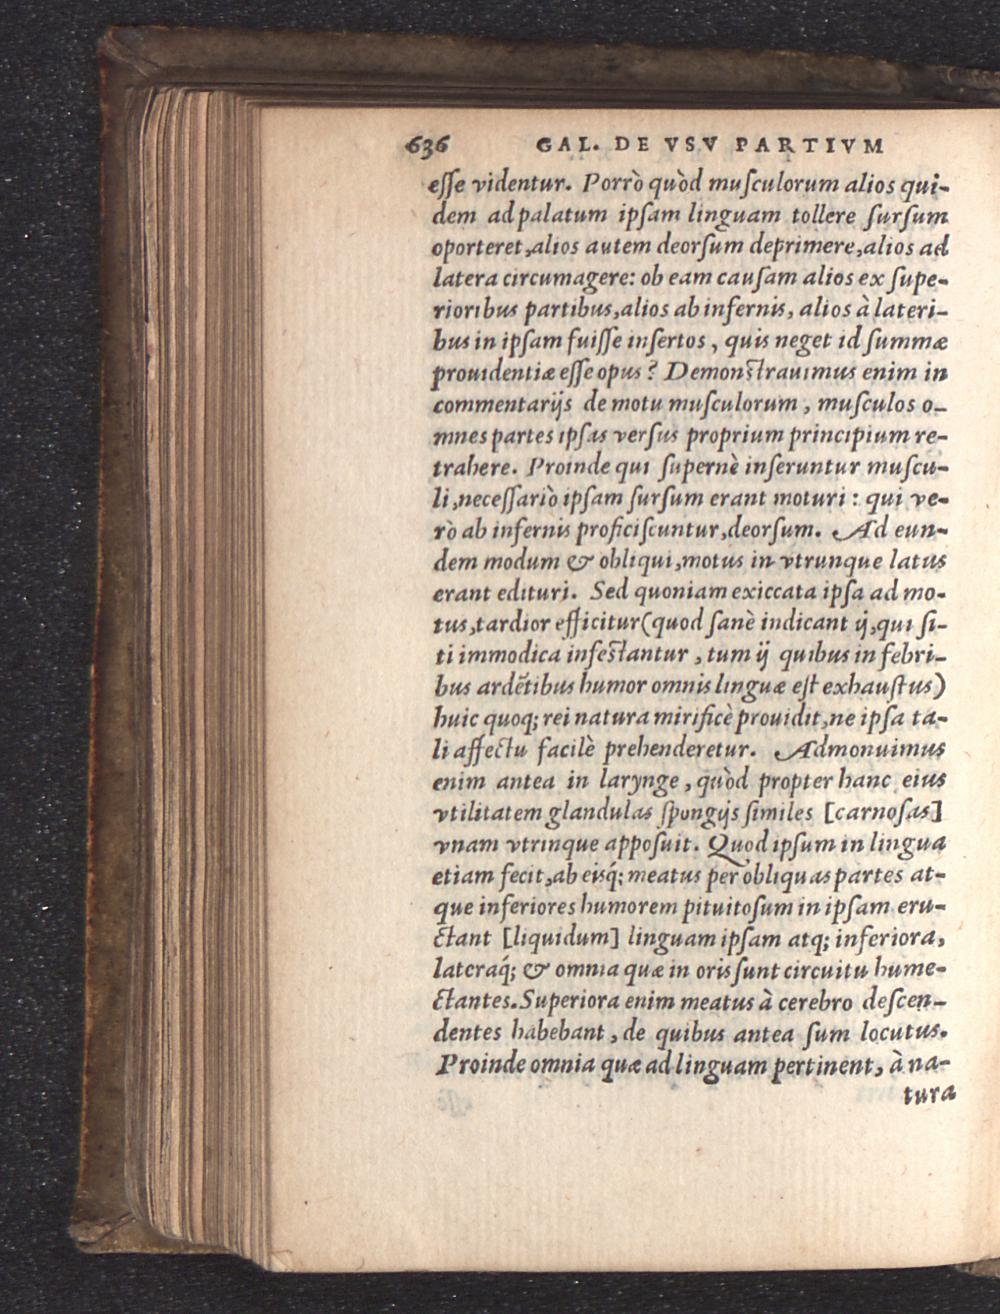 636 GAL. DE VSV PARTIVM
eſſe videntur. Porrò quòd muſculorum alios qui-
dem ad palatum ipſam linguam tollere ſurſum
oporteret, alios autem deorſum deprimere, alios ad
latera circumagere: ob eam cauſam alios ex ſupe-
rioribus partibus, alios ab infernis, alios à lateri-
bus in ipſam fuiſſe inſertos, quis neget id ſummæ
prouidentiæ eſſe opus? Demonſtrauimus enim in
commentarijs de motu muſculorum, muſculos o-
mnes partes ipſas verſus proprium principium re-
trahere. Proinde qui ſupernè inſeruntur muſcu-
li, neceſſariò ipſam ſurſum erant moturi: qui ve-
rò ab infernis proficiſcuntur, deorſum. Ad eun-
dem modum & obliqui, motus in vtrunque latus
erant edituri. Sed quoniam exiccata ipſa ad mo-
tus, tardior efficitur (quod ſanè indicant ij, qui ſi-
ti immodica infeſtantur, tum ij quibus in febri-
bus ardẽtibus humor omnis linguæ eſt exhauſtus)
huic quoq; rei natura mirificè prouidit, ne ipſa ta-
li affectu facilè prehenderetur. Admonuimus
enim antea in larynge, quòd propter hanc eius
vtilitatem glandulas ſpongijs ſimiles [carnoſas]
vnam vtrinque appoſuit. Quod ipſum in lingua
etiam fecit, ab eisq́; meatus per obliquas partes at-
que inferiores humorem pituitoſum in ipſam eru-
ctant [liquidum] linguam ipſam atq; inferiora,
lateraq́; & omnia quæ in oris ſunt circuitu hume-
ctantes. Superiora enim meatus à cerebro deſcen-
dentes habebant, de quibus antea ſum locutus.
Proinde omnia quæ ad linguam pertinent, à na-
tura